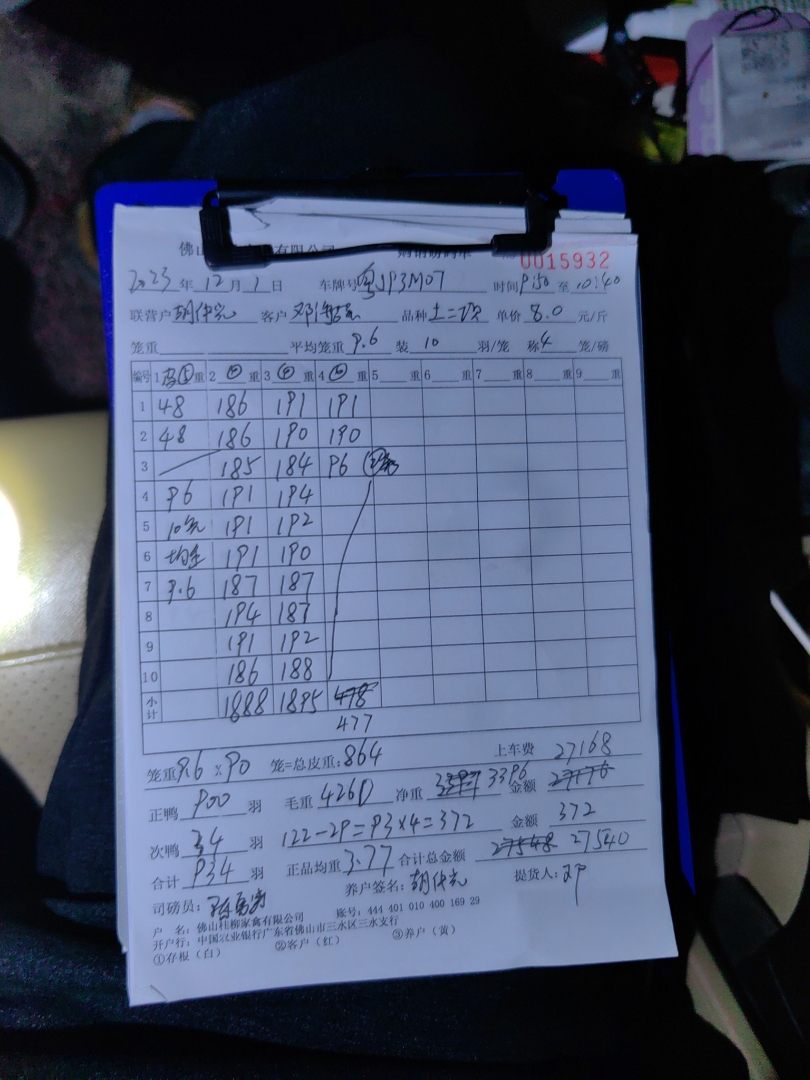 佛山 有限公司 0015932
2023年12月1日 车牌号粤JP3M07 时间9:50至10:40
联营户 客户 邓 品种土二 单价8.0元/斤
笼重 平均笼重9.6 装10羽/笼 称4笼/磅
编号 1 重 2 重 3 重 4 重 5 重 6 重 7 重 8 重 9 重
1 48 186 191 191
2 48 186 190 190
3 185 184 96
4 96 191 194
5 10 191 192
6 191 190
7 9.6 187 187
8 194 187
9 191 192
10 186 188
小计 1888 1895 478
477
笼重9.6×90 笼=总皮重:864 上车费 27168
正鸭900羽 毛重4260 净重 3396 金额
次鸭34羽 122-29=93×4=372 金额 372
合计934羽 正品均重3.77 合计总金额 27548 27540
养户签名: 提货人:邓
司磅员:
户 名:佛山桂柳家禽有限公司 账号:444 401 010 400 169 29
开户行:中国农业银行广东省佛山市三水区三水支行
①存根(白) ②客户(红) ③养户(黄)